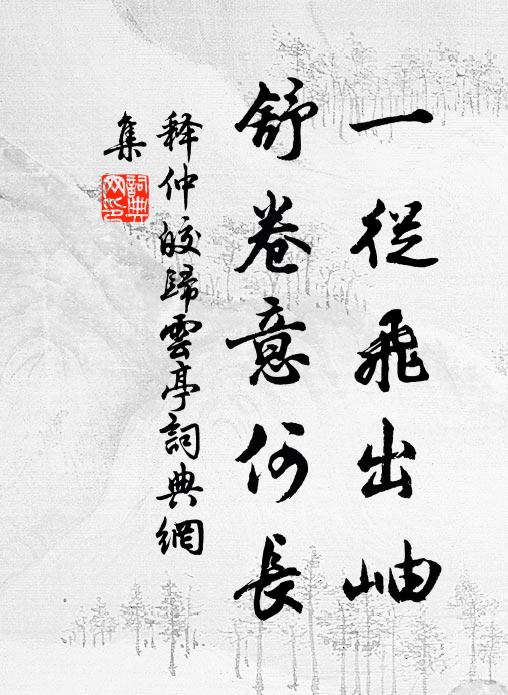 一從飛出岫
舒卷意何長
释仲皎歸雲亭詞典網
集
詞典
网印